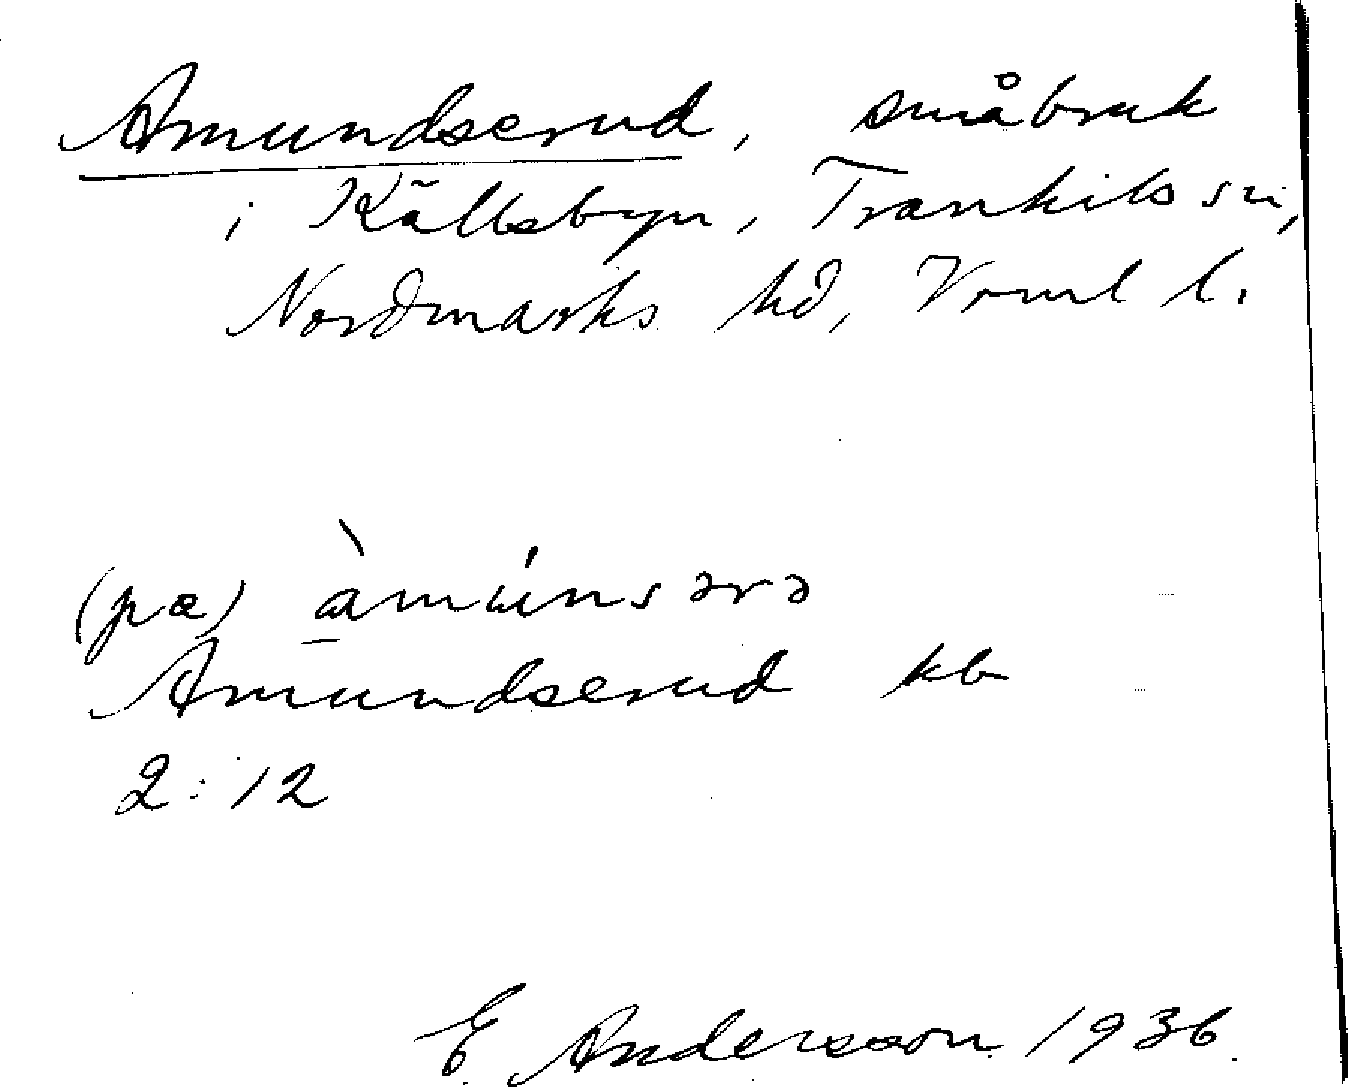 Amundserud, småbruk
i Källsbyn, Trankils sn,
Nordmarks hd, Vrml l.
(pa) àmúnsərə
Amundserud kb
2:12
E Andersson 1936.